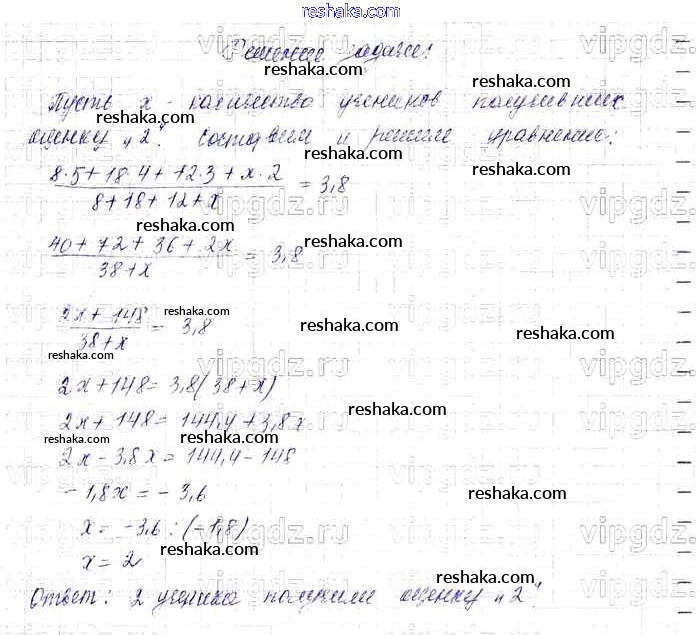 reshaka.com
Решение задачи:
reshaka.com
reshaka.com
Пусть x - количество учеников получивших
reshaka.com
оценку „2". Составим и решим уравнение:
reshaka.com
8·5+18·4+12·3+x·2 / 8+18+12+x = 3,8
reshaka.com
40+72+36+2x / 38+x = 3,8
reshaka.com
2x+148 / 38+x = 3,8
reshaka.com
reshaka.com
reshaka.com
reshaka.com
2x+148=3,8(38+x)
2x+148=144,4+3,8x
reshaka.com
reshaka.com
reshaka.com
2x-3,8x=144,4-148
-1,8x=-3,6
reshaka.com
x=-3,6:(-1,8)
x=2
reshaka.com
reshaka.com
Ответ: 2 ученика получили оценку „2".
reshaka.com
vipgdz.ru